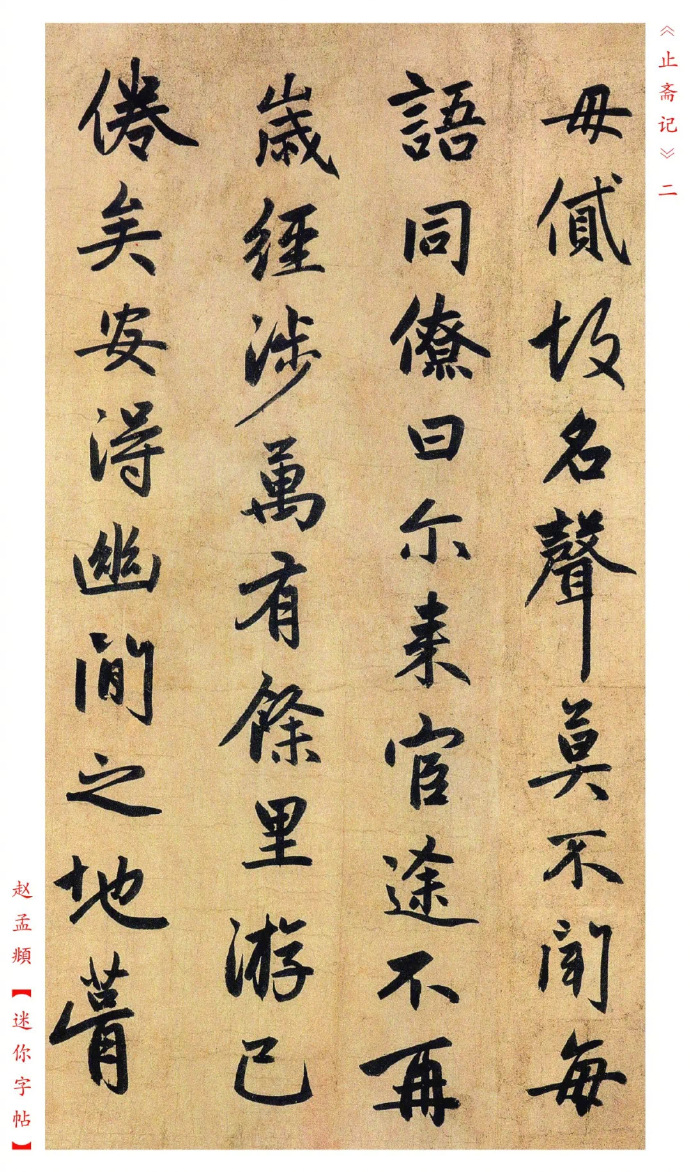 《止斋记》二
毋貳故名聲莫不聞每
語同僚曰尔来宦途不再
歲經涉萬有餘里游已
倦矣安得幽閒之地營
赵孟頫【迷你字帖】